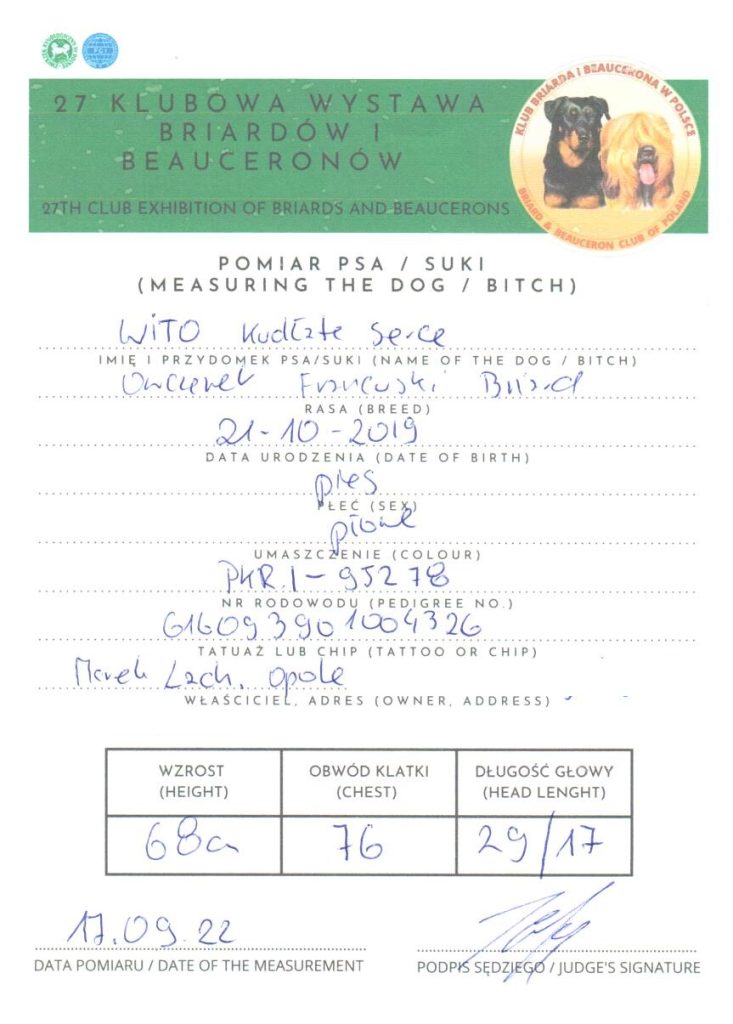 ZWIĄZEK KYNOLOGICZNY W POLSCE
FCI
27 KLUBOWA WYSTAWA
BRIARDÓW I
BEAUCERONÓW
27TH CLUB EXHIBITION OF BRIARDS AND BEAUCERONS
KLUB BRIARDA I BEAUCERONA W POLSCE
BRIARD & BEAUCERON CLUB OF POLAND
POMIAR PSA / SUKI
(MEASURING THE DOG / BITCH)
WiTO Kudłate Serce
IMIĘ I PRZYDOMEK PSA/SUKI (NAME OF THE DOG / BITCH)
Owczarek Francuski Briard
RASA (BREED)
21-10-2019
DATA URODZENIA (DATE OF BIRTH)
pies
PŁEĆ (SEX)
płowe
UMASZCZENIE (COLOUR)
PKR.I-95278
NR RODOWODU (PEDIGREE NO.)
616093901004326
TATUAŻ LUB CHIP (TATTOO OR CHIP)
Marek Lach. Opole
WŁAŚCICIEL, ADRES (OWNER, ADDRESS)
WZROST OBWÓD KLATKI DŁUGOŚĆ GŁOWY
(HEIGHT) (CHEST) (HEAD LENGHT)
68cm 76 29/17
17.09.22
DATA POMIARU / DATE OF THE MEASUREMENT PODPIS SĘDZIEGO / JUDGE'S SIGNATURE